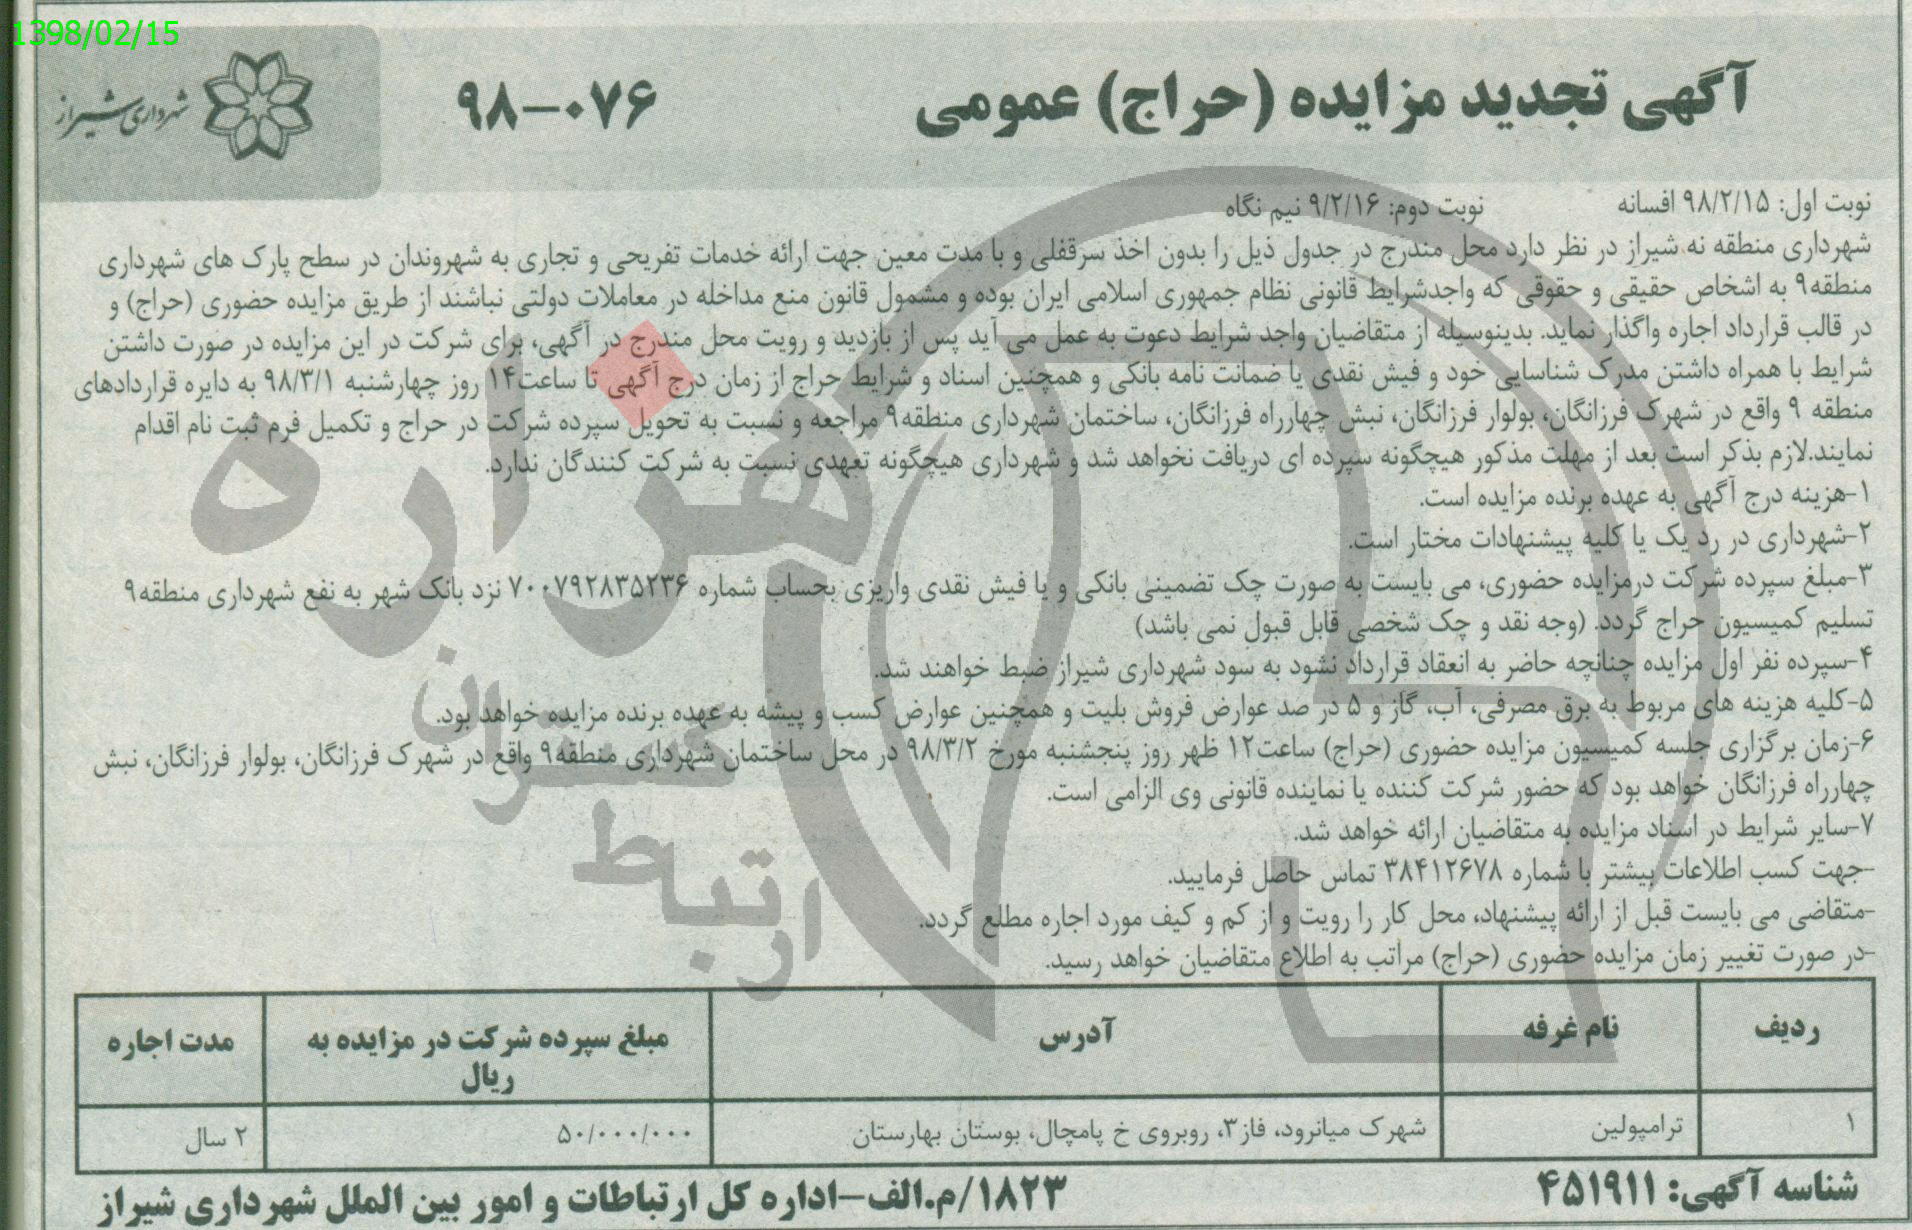 1398/02/15
آگهی تجدید مزایده (حراج) عمومی
۹۸-۰۷۶
شهرداری شیراز
نوبت اول: ۹۸/۲/۱۵ افسانه نوبت دوم: ۹/۲/۱۶ نیم نگاه
شهرداری منطقه نه شیراز در نظر دارد محل مندرج در جدول ذیل را بدون اخذ سرقفلی و با مدت معین جهت ارائه خدمات تفریحی و تجاری به شهروندان در سطح پارک های شهرداری
منطقه۹ به اشخاص حقیقی و حقوقی که واجدشرایط قانونی نظام جمهوری اسلامی ایران بوده و مشمول قانون منع مداخله در معاملات دولتی نباشند از طریق مزایده حضوری (حراج) و
در قالب قرارداد اجاره واگذار نماید. بدینوسیله از متقاضیان واجد شرایط دعوت به عمل می آید پس از بازدید و رویت محل مندرج در آگهی، برای شرکت در این مزایده در صورت داشتن
شرایط با همراه داشتن مدرک شناسایی خود و فیش نقدی یا ضمانت نامه بانکی و همچنین اسناد و شرایط حراج از زمان درج آگهی تا ساعت۱۴ روز چهارشنبه ۹۸/۳/۱ به دایره قراردادهای
منطقه ۹ واقع در شهرک فرزانگان، بولوار فرزانگان، نبش چهارراه فرزانگان، ساختمان شهرداری منطقه۹ مراجعه و نسبت به تحویل سپرده شرکت در حراج و تکمیل فرم ثبت نام اقدام
نمایند.لازم بذکر است بعد از مهلت مذکور هیچگونه سپرده ای دریافت نخواهد شد و شهرداری هیچگونه تعهدی نسبت به شرکت کنندگان ندارد.
۱-هزینه درج آگهی به عهده برنده مزایده است.
۲-شهرداری در رد یک یا کلیه پیشنهادات مختار است.
۳-مبلغ سپرده شرکت درمزایده حضوری، می بایست به صورت چک تضمینی بانکی و یا فیش نقدی واریزی بحساب شماره ۷۰۰۷۹۲۸۳۵۲۳۶ نزد بانک شهر به نفع شهرداری منطقه۹
تسلیم کمیسیون حراج گردد. (وجه نقد و چک شخصی قابل قبول نمی باشد)
۴-سپرده نفر اول مزایده چنانچه حاضر به انعقاد قرارداد نشود به سود شهرداری شیراز ضبط خواهند شد.
۵-کلیه هزینه های مربوط به برق مصرفی، آب، گاز و ۵ در صد عوارض فروش بلیت و همچنین عوارض کسب و پیشه به عهده برنده مزایده خواهد بود.
۶-زمان برگزاری جلسه کمیسیون مزایده حضوری (حراج) ساعت۱۲ ظهر روز پنجشنبه مورخ ۹۸/۳/۲ در محل ساختمان شهرداری منطقه۹ واقع در شهرک فرزانگان، بولوار فرزانگان، نبش
چهارراه فرزانگان خواهد بود که حضور شرکت کننده یا نماینده قانونی وی الزامی است.
۷-سایر شرایط در اسناد مزایده به متقاضیان ارائه خواهد شد.
-جهت کسب اطلاعات بیشتر با شماره ۳۸۴۱۲۶۷۸ تماس حاصل فرمایید.
-متقاضی می بایست قبل از ارائه پیشنهاد، محل کار را رویت و از کم و کیف مورد اجاره مطلع گردد.
-در صورت تغییر زمان مزایده حضوری (حراج) مراتب به اطلاع متقاضیان خواهد رسید.
ردیف نام غرفه آدرس مبلغ سپرده شرکت در مزایده به ریال مدت اجاره
۱ ترامپولین شهرک میانرود، فاز۳، روبروی خ پامچال، بوستان بهارستان ۵۰/۰۰۰/۰۰۰ ۲ سال
شناسه آگهی: ۴۵۱۹۱۱ ۱۸۲۳/م.الف-اداره کل ارتباطات و امور بین الملل شهرداری شیراز
هزاره
ارتباط گستران